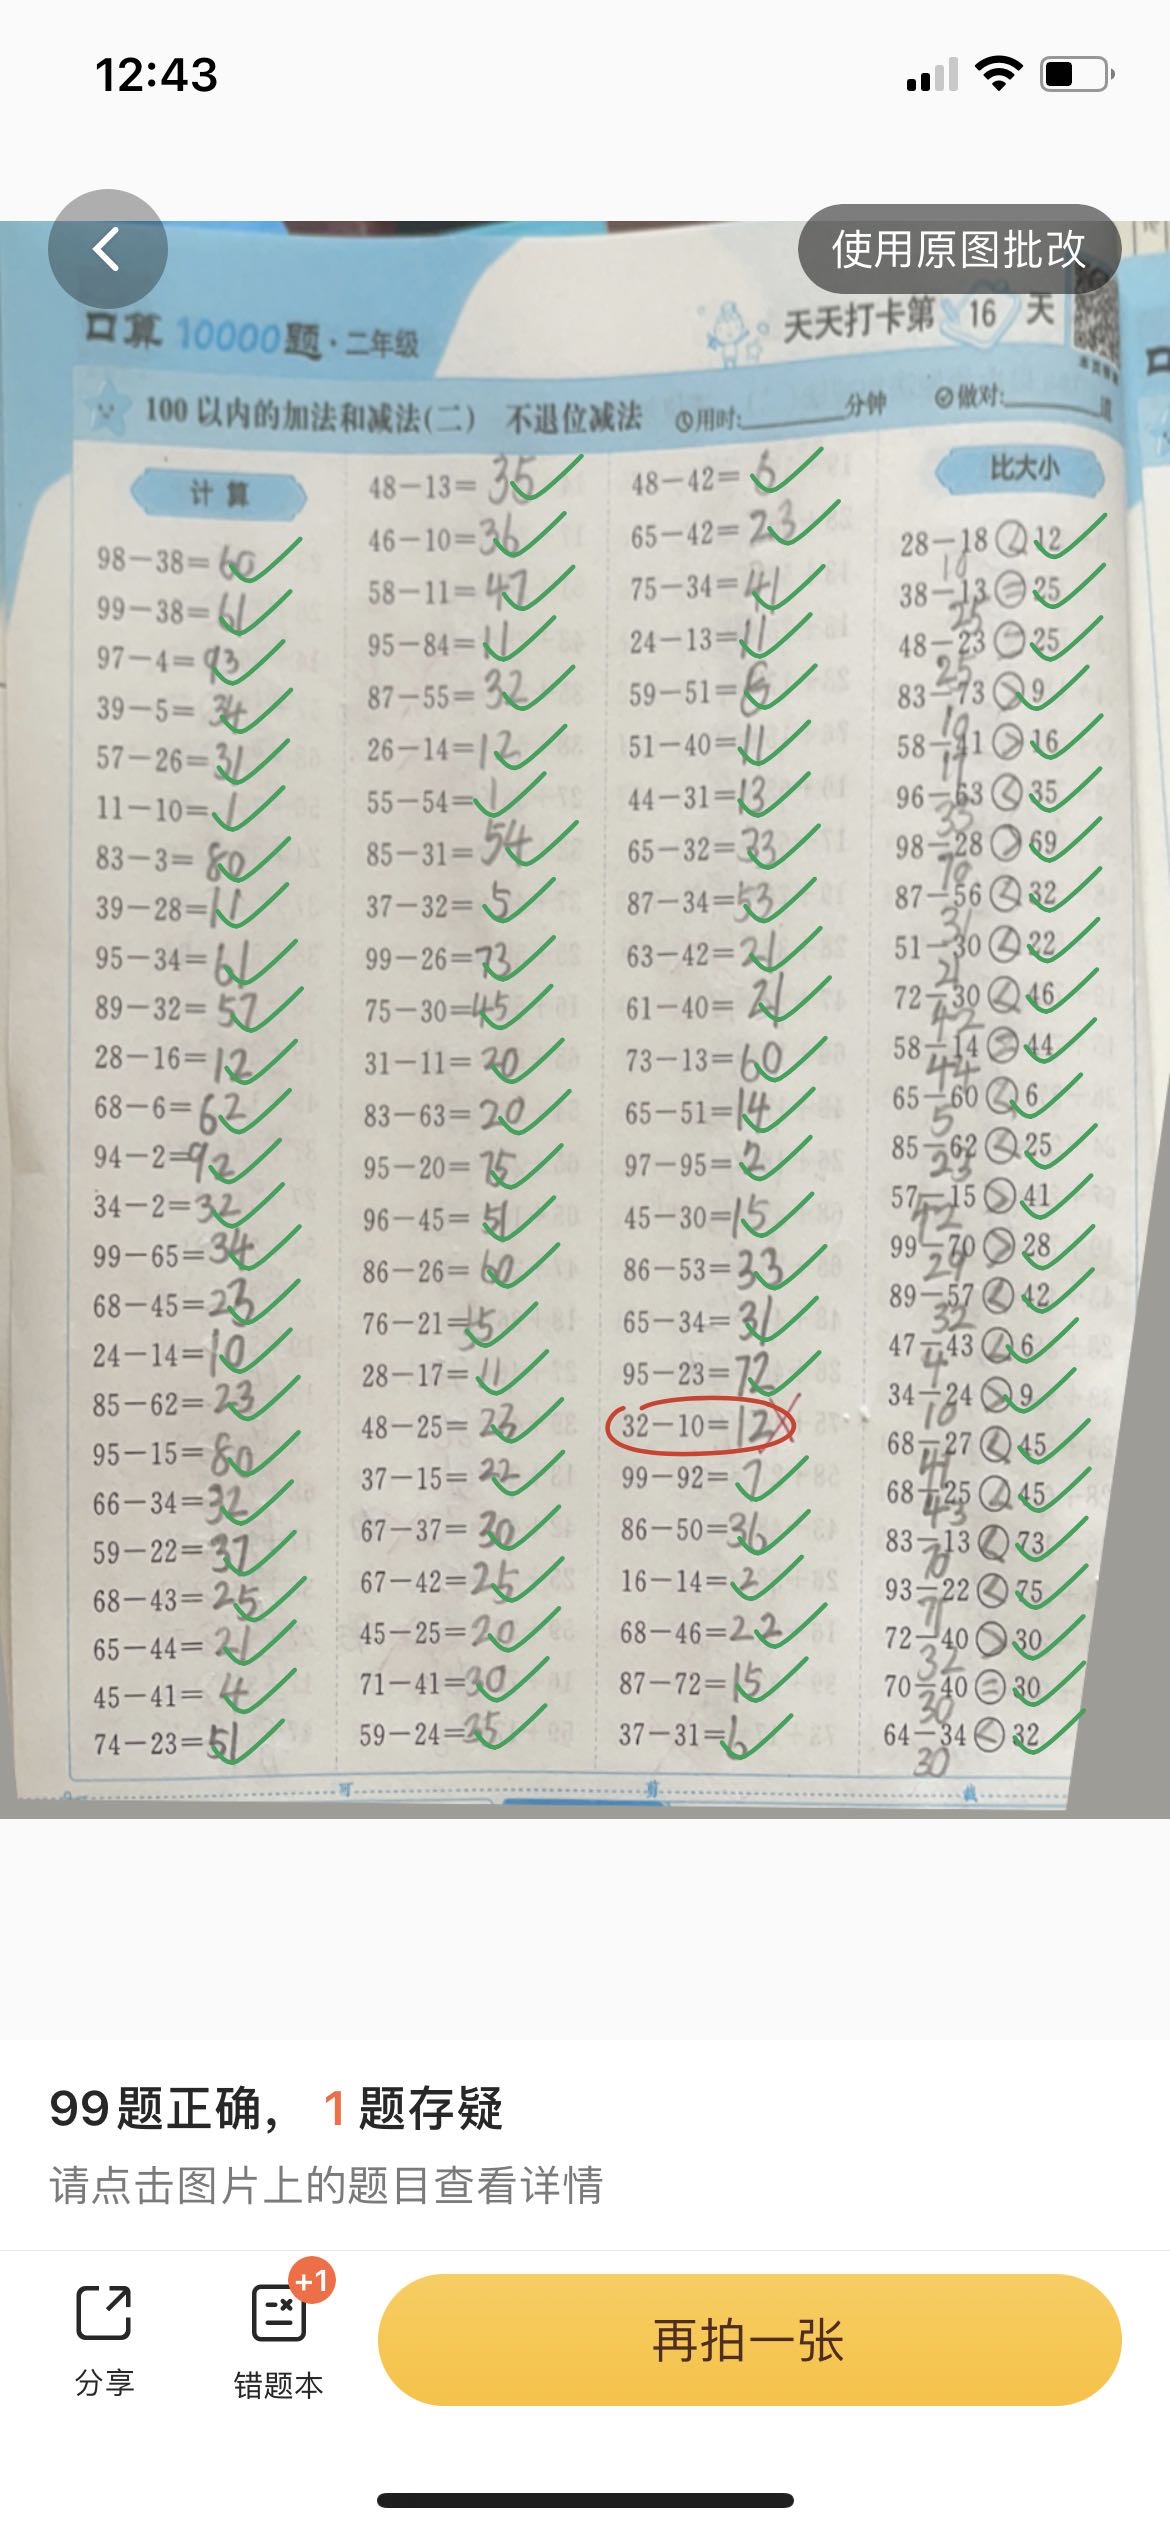 12:43
使用原图批改
口算 10000题·二年级
天天打卡第 16 天
100 以内的加法和减法(二) 不退位减法
用时:________分钟
做对:________道
计 算
98-38=60
99-38=61
97-4=93
39-5=34
57-26=31
11-10=1
83-3=80
39-28=11
95-34=61
89-32=57
28-16=12
68-6=62
94-2=92
34-2=32
99-65=34
68-45=23
24-14=10
85-62=23
95-15=80
66-34=32
59-22=37
68-43=25
65-44=21
45-41=4
74-23=51
48-13=35
46-10=36
58-11=47
95-84=11
87-55=32
26-14=12
55-54=1
85-31=54
37-32=5
99-26=73
75-30=45
31-11=20
83-63=20
95-20=75
96-45=51
86-26=60
76-21=55
28-17=11
48-25=23
37-15=22
67-37=30
67-42=25
45-25=20
71-41=30
59-24=35
48-42=6
65-42=23
75-34=41
24-13=11
59-51=8
51-40=11
44-31=13
65-32=33
87-34=53
63-42=21
61-40=21
73-13=60
65-51=14
97-95=2
45-30=15
86-53=33
65-34=31
95-23=72
32-10=12
99-92=7
86-50=36
16-14=2
68-46=22
87-72=15
37-31=6
比大小
28-18<12
10
38-13=25
25
48-23=25
25
83-73>9
10
58-41>16
17
96-63<35
33
98-28>69
70
87-56<32
31
51-30<22
21
72-30<46
42
58-14=44
44
65-60<6
5
85-62<25
23
57-15>41
42
99-70>28
29
89-57<42
32
47-43<6
4
34-24>9
10
68-27<45
41
68-25<45
43
83-13<73
70
93-22<75
71
72-40>30
32
70-40=30
30
64-34<32
30
可 剪 裁
99题正确，1题存疑
请点击图片上的题目查看详情
分享
+1
错题本
再拍一张